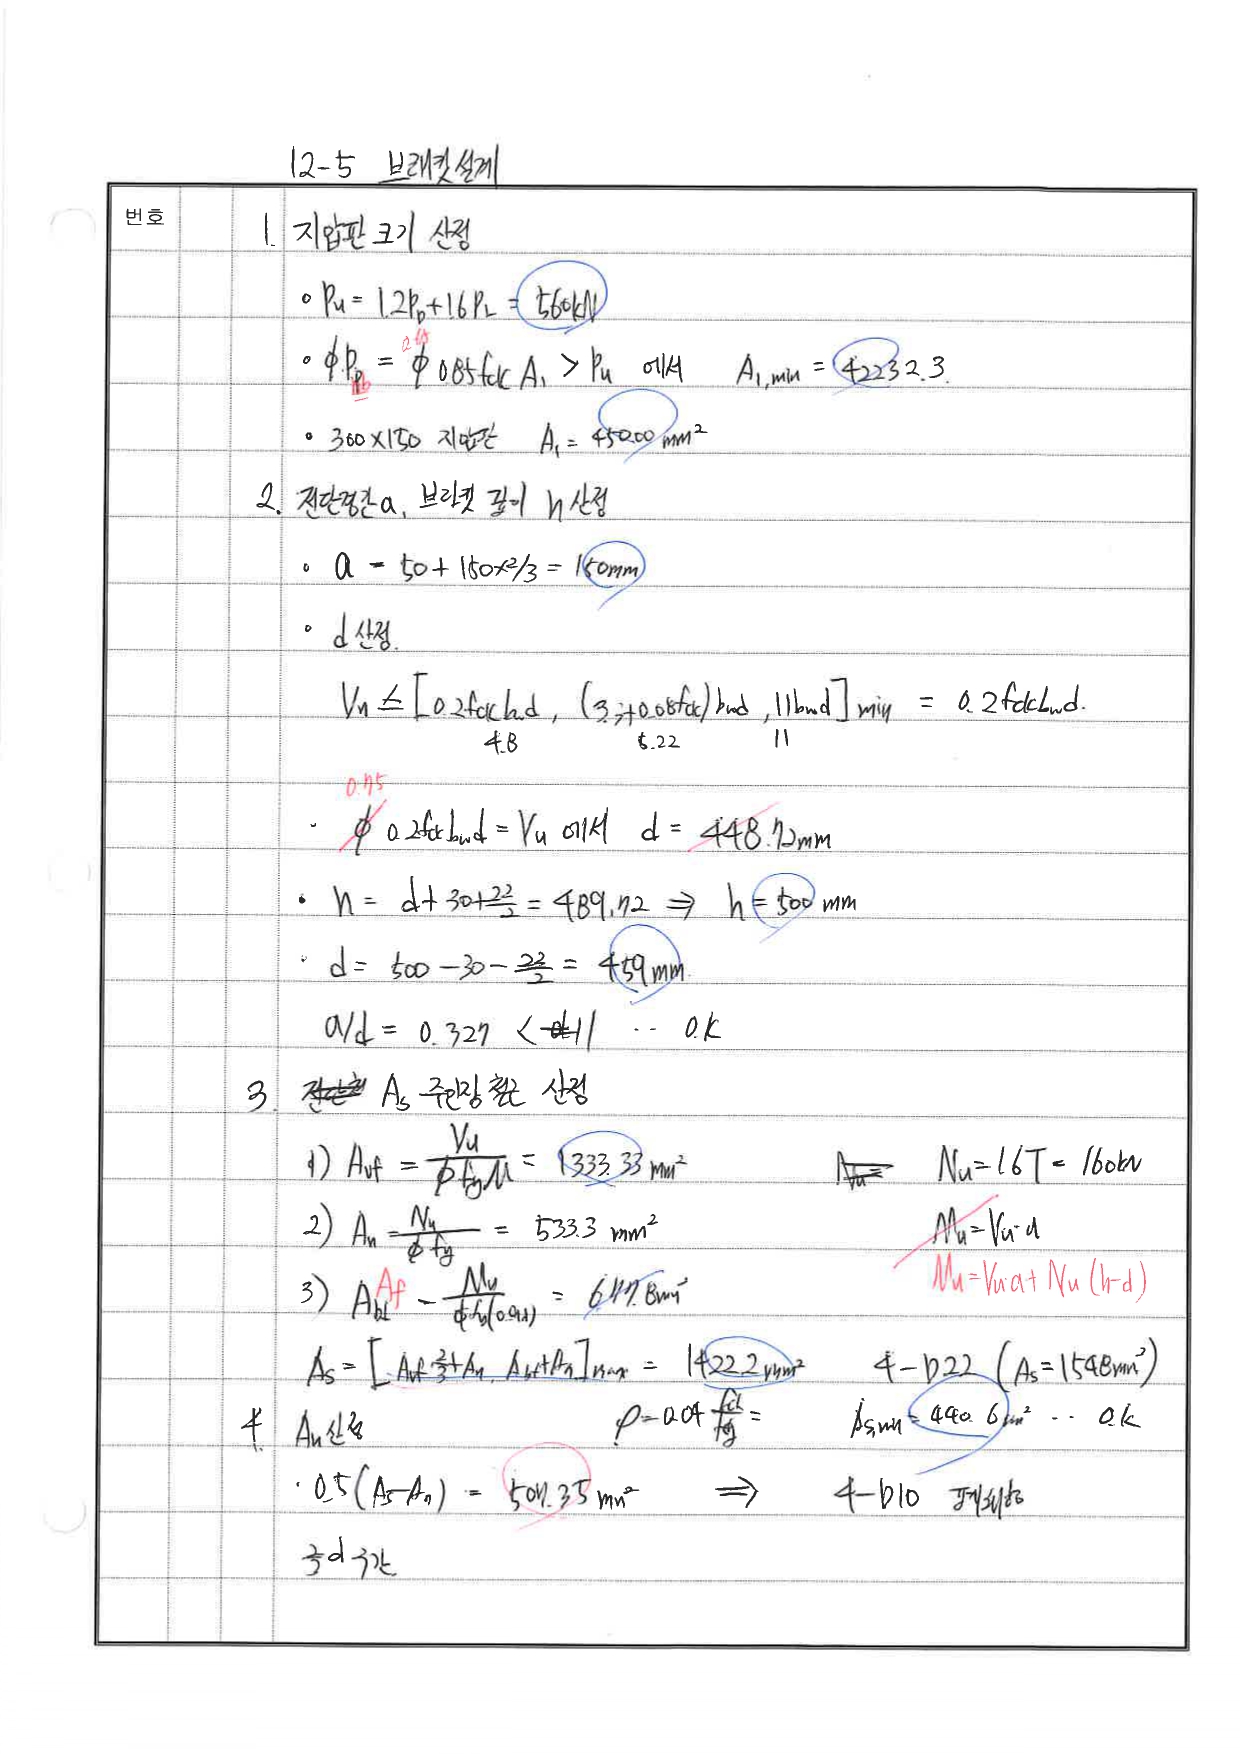 12-5 브래킷 설계
번호
1. 지압판 크기 산정
• Pu = 1.2PD+1.6PL = 560kN
0.65
• φPnb = φ0.85fck A1 > Pu 에서 A1,min = 42232.3.
• 300×150 지압판 A1 = 45000 mm²
2. 전단경간a, 브라켓 깊이 h 산정
• a = 50+150×2/3 = 150mm
• d 산정.
Vn ≤ [0.2fckbwd, (3.3+0.08fck)bwd, 11bwd]min = 0.2fckbwd.
4.8 5.22 11
0.75
• φ 0.2fckbwd = Vu 에서 d = 448.72mm
• h = d+30+22/2 = 489.72 ⇒ h = 500 mm
• d = 500-30-22/2 = 459mm.
a/d = 0.327 < 1 ‥ O.K
3. As 주인장 철근 산정
1) Avf = Vu/φfyμ = 1333.33 mm² Nu=1.6T= 160kN
2) An = Nu/φfy = 533.3 mm² Mu=Vu·d
Mu=Vu·a+Nu(h-d)
3) Af = Mu/φfy(0.9d) = 647.8mm²
As = [Avf 2/3+An, Abf+An]max = 1422.2mm² 4-D22 (As=1548mm²)
4. An 산정 ρ=0.04 fck/fy = As,min = 440.6mm² ‥ O.K
• 0.5(As-An) = 507.35mm² ⇒ 4-D10 폐쇄형
2/3 d 구간